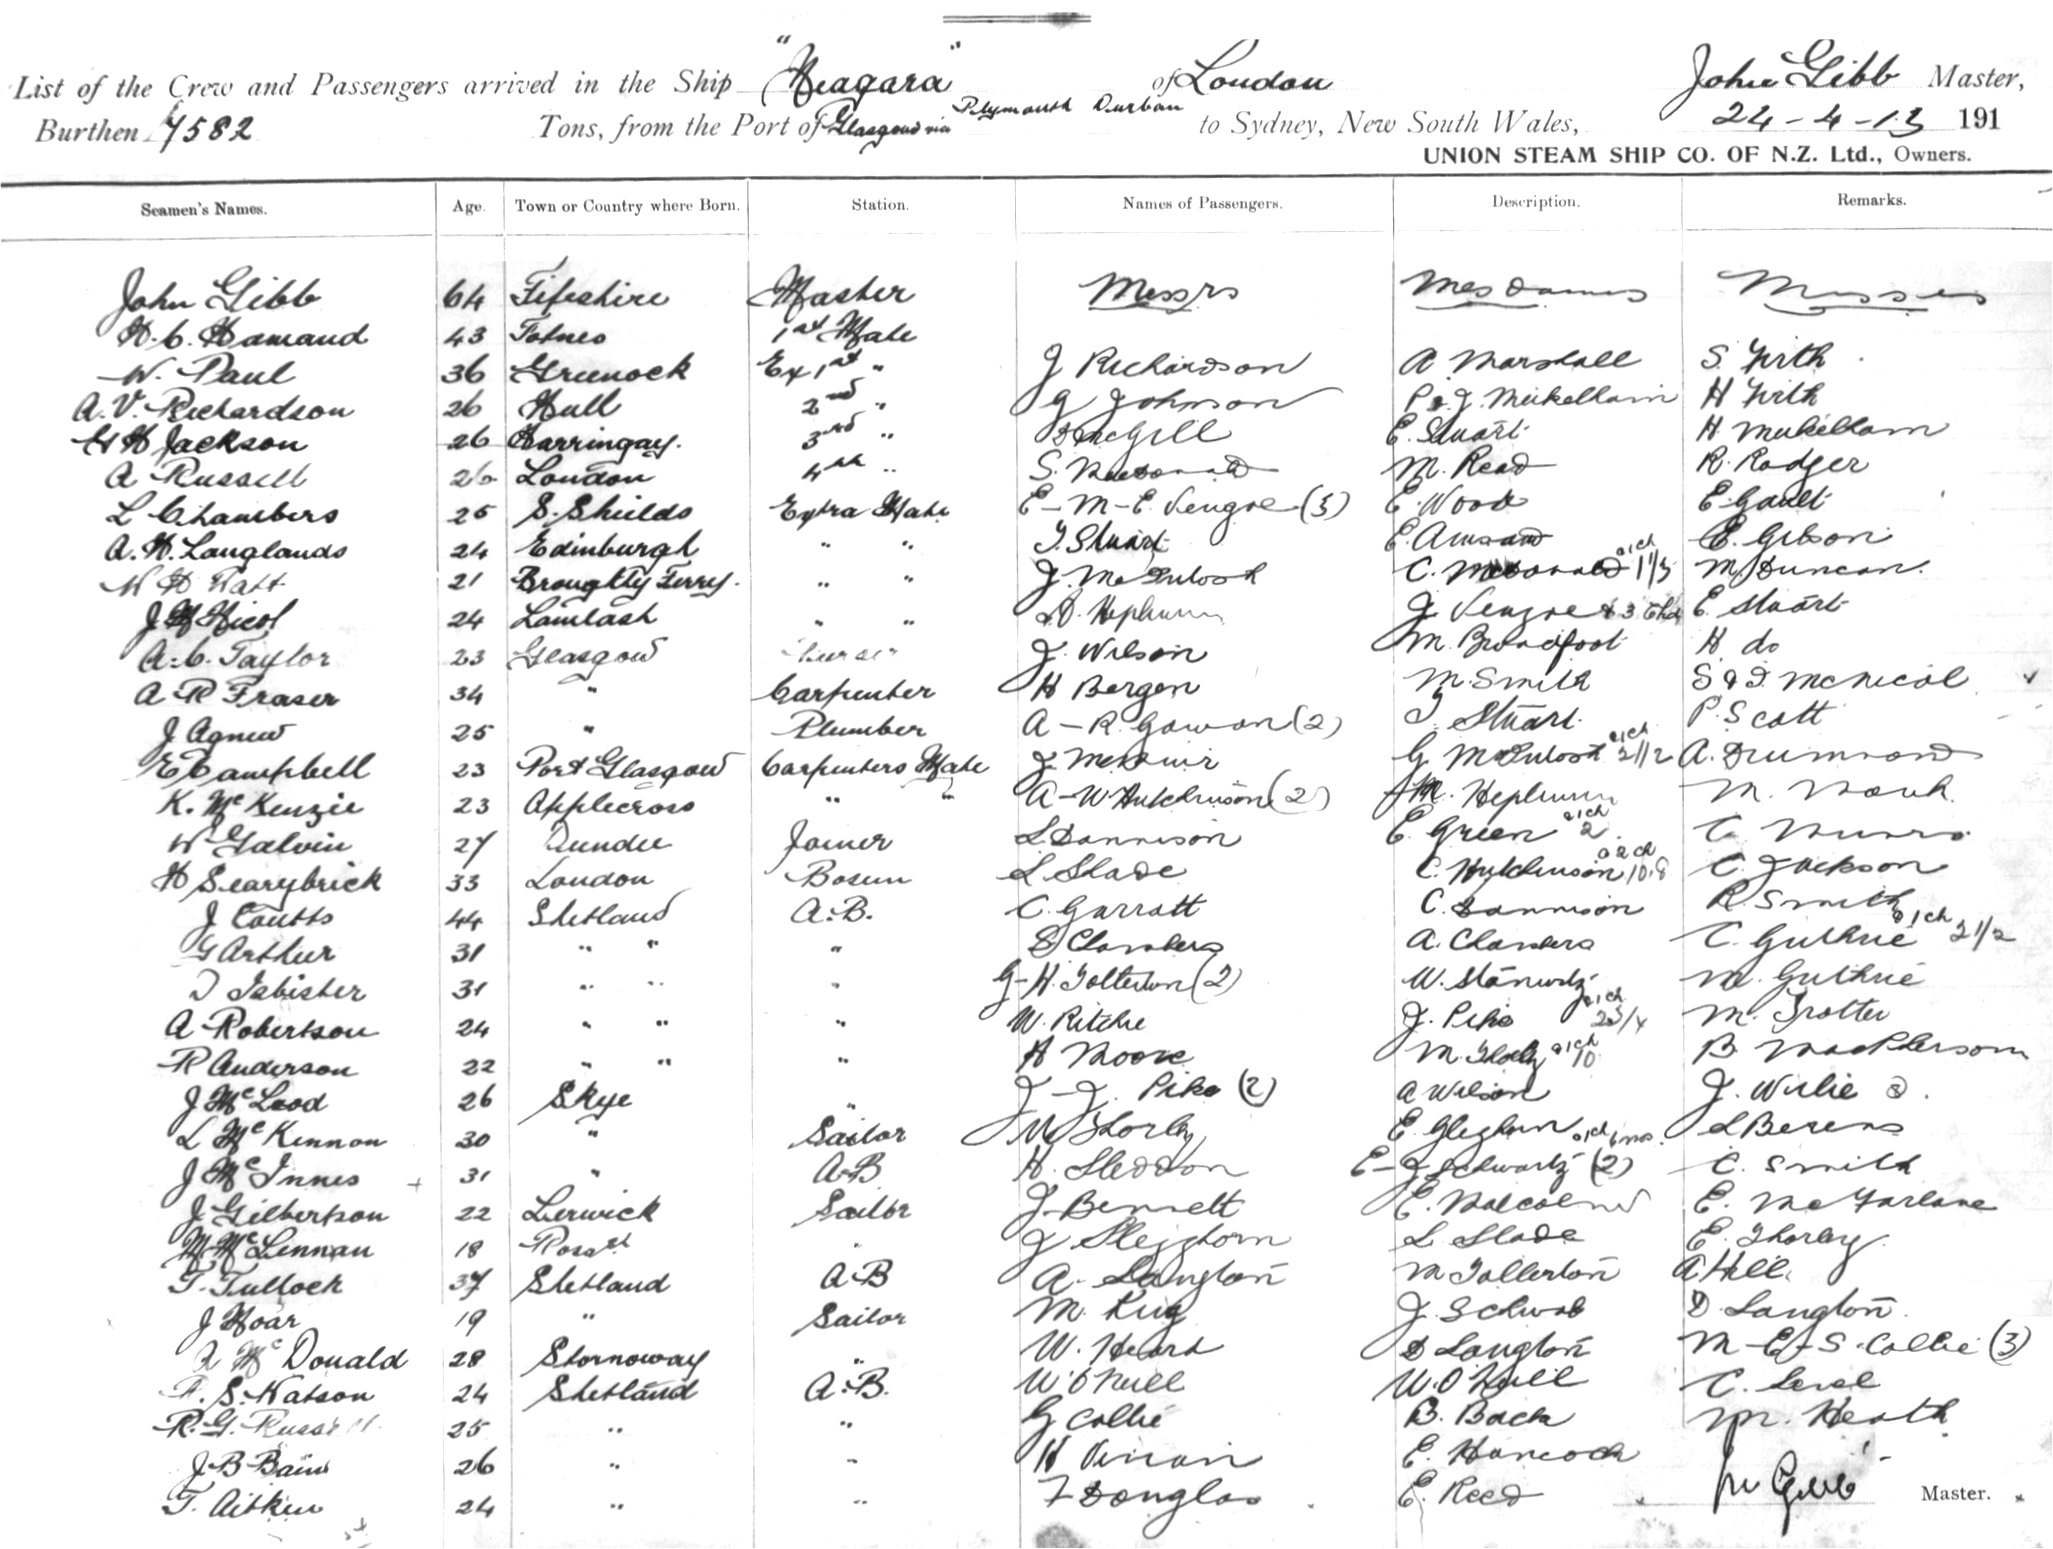 List of the Crew and Passengers arrived in the Ship "Niagara" of London John Gibb Master,
Burthen 7582 Tons, from the Port of Glasgow via Plymouth Durban to Sydney, New South Wales, 24-4-13 191
UNION STEAM SHIP CO. OF N.Z. Ltd., Owners.
Seamen's Names. Age. Town or Country where Born. Station. Names of Passengers. Description. Remarks.
John Gibb 64 Fifeshire Master Messrs Mesdames Misses
H. C. Hamand 43 Totnes 1st Mate
W. Paul 36 Greenock Ex 1st " J Richardson A Marshall S Firth
A. V. Richardson 26 Hull 2nd " G Johnson P & J. McKellain H Firth
H Jackson 26 Harringay. 3rd " McGill E. Stuart H McKellam
A Russell 26 London 4th " S. McDonald M. Read R. Rodger
L Chambers 25 S. Shields Extra Mate E-M-E. Vengoe (3) E. Wood E. Gault
A. H. Langlands 24 Edinburgh " " J. Stuart E. E. Gibson
W H Tait 21 Broughty Ferry. " " J. McIntosh C. McDonald a 1 ch 1 1/3 M Duncan.
J Nicol 24 Lamlash " " D. Hepburn J Vengoe & 3 Chd E Stuart
A. C. Taylor 23 Glasgow J. Wilson M. Broadfoot H do
A R Fraser 34 " Carpenter H Bergen M. Smith S & I. McNicol
J Agnew 25 " Plumber A-R. Gowan (2) J. Stuart P. Scott
E Campbell 23 Port Glasgow Carpenters Mate J. McNuir G McIntosh a 1 ch 2 1/2 A. Drumond
K. McKenzie 23 Applecross " " A-W Hutchinson (2) M. Hepburn M. Monk
W Galvin 27 Dundee Joiner L Dannison E. Green a 1 ch 2 C Munro
H Scarybrick 33 London Bosun L Slade C. Hutchinson a 2 ch 10.8 C. Jackson
J Coutts 44 Shetland A.B. C. Garratt C. Dannison R Smith
G Arthur 31 " " " S Chambers A. Chambers C. Guthrie a 1 ch 2 1/2
D Isbister 31 " " " G-H. Tollerton (2) W. M. Guthrie
A Robertson 24 " " " W. Ritchie J. Pike a 1 ch 2 3/4 M. Trotter
R Anderson 22 " " " H Moore M. Thorley a 1 ch 10 B. MacPherson
J McLeod 26 Skye " J-J. Pike (2) A Wilson J. Wilie
L McKinnon 30 " Sailor W Thorley E. Gleghorn a 1 ch 6 mos. L Berens
J McInnes 31 " A.B H. Sleddon E-J Schwartz (2) C. Smith
J. Gilbertson 22 Lerwick Sailor J. Bennett E. Malcolm E. McFarlane
M McLennan 18 " J Sleighorn L Slade E. Thorley
T. Tullock 37 Shetland A.B A. Langton M Tollerton A Hill.
J Hoar 19 " Sailor M. King J. Schwab D. Langton.
A McDonald 28 Stornoway " W. Heard D Langton M-E-S. Collie (3)
S. Watson 24 Shetland A.B. W. O'Neill W. O'Neill C. Seal
R. G. Russell 25 " " G Collie B. Back M. Heath
J B Bain 26 " " H Vivian E. Hancock
T. Aitken 24 " " F Douglas E. Reed Jn Gibb Master.